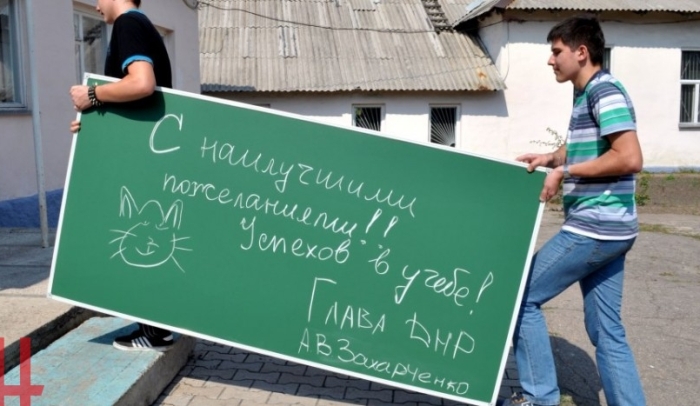 С наилучшими
пожеланиями!!
Успехов в учебе!
Глава ДНР
А В Захарченко